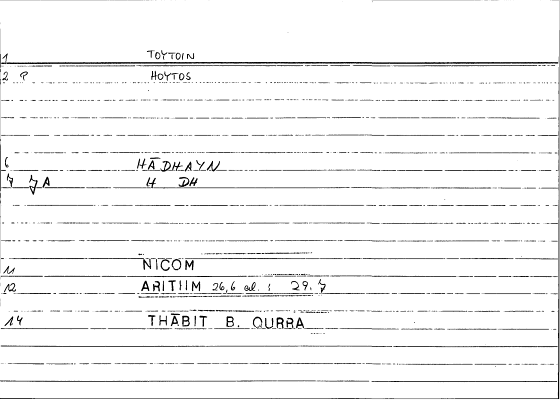 1 TOYTOIN
2 P HOYTOS
6 HĀDHAYN
7 7A H DH
11 NICOM
12 ARITIIM 26,6 ad. : 29.7
14 THĀBIT B. QURRA